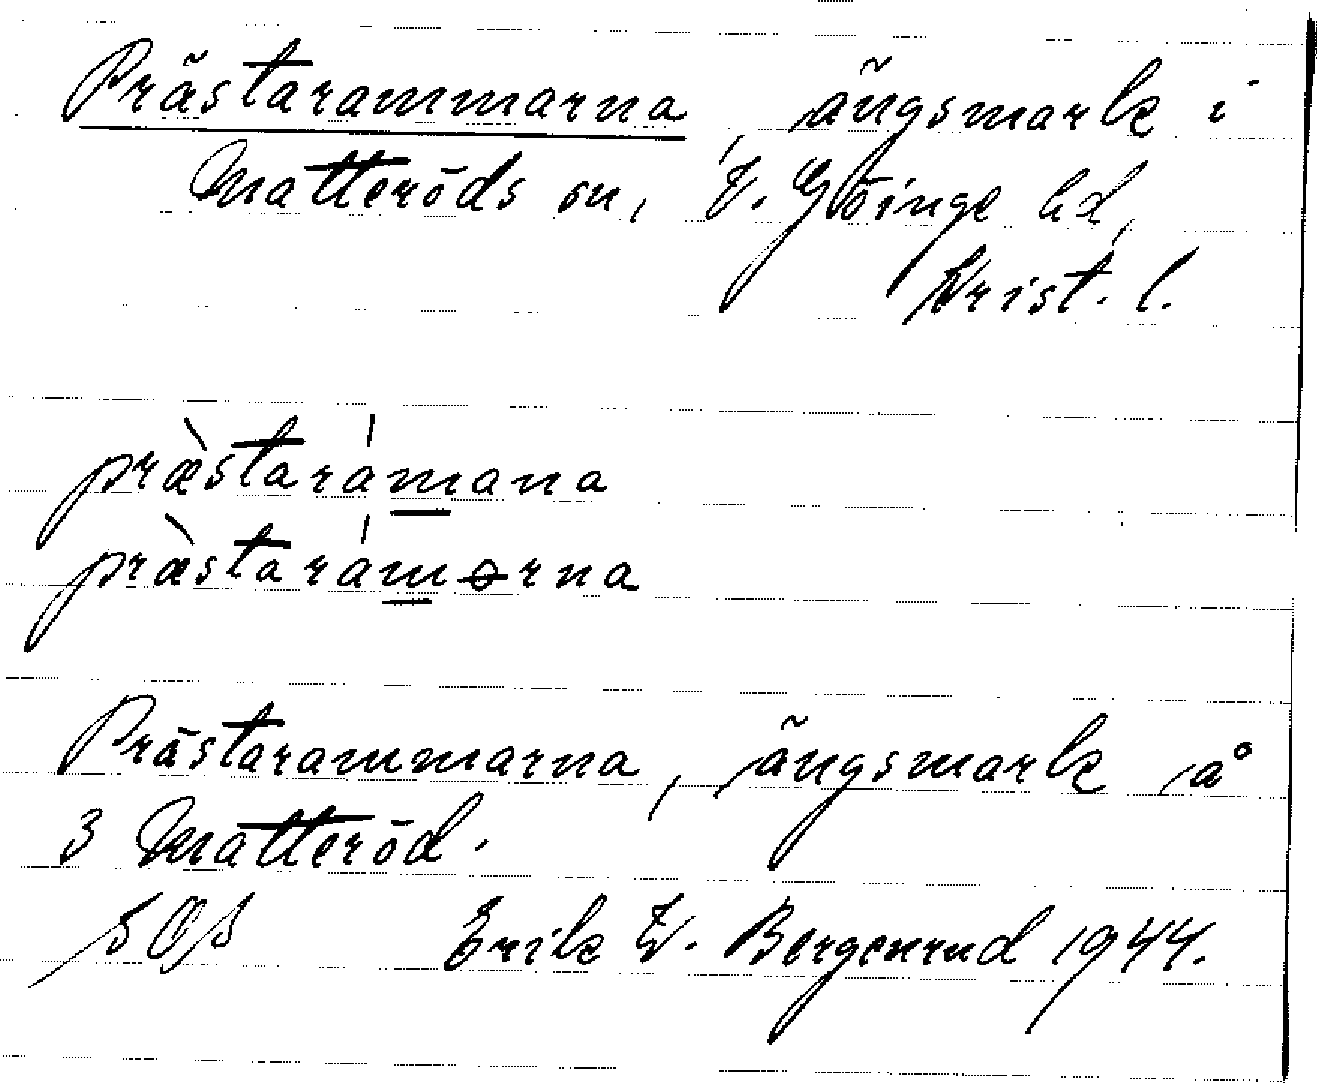 Prästarammarna, ängsmark i
Matteröds sn, V. Göinge hd,
Krist. l.
præ̀starám̲ana
præ̀starám̲ɵrna
Prästarammarna, ängsmark å
3 Matteröd.
SOS Erik W. Bergenrud 1944.